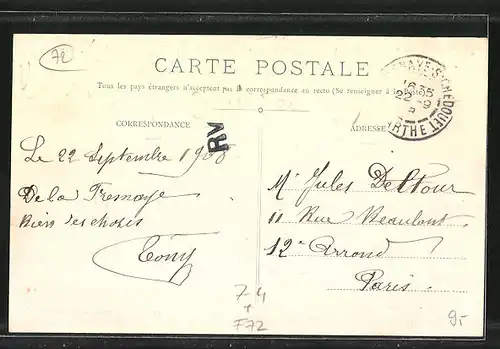 72
CARTE POSTALE
Tous les pays étrangers n'acceptent pas la correspondance au recto (Se renseigner à la
CORRESPONDANCE
ADRESSE
RV
16 35
22 - 9
Le 22 Septembre 1908
De la Fresnaye
Bien des choses
Tony
Mr Jules Deltour
11 Rue Beaulont
12e Arrond
Paris
74
F72
9-